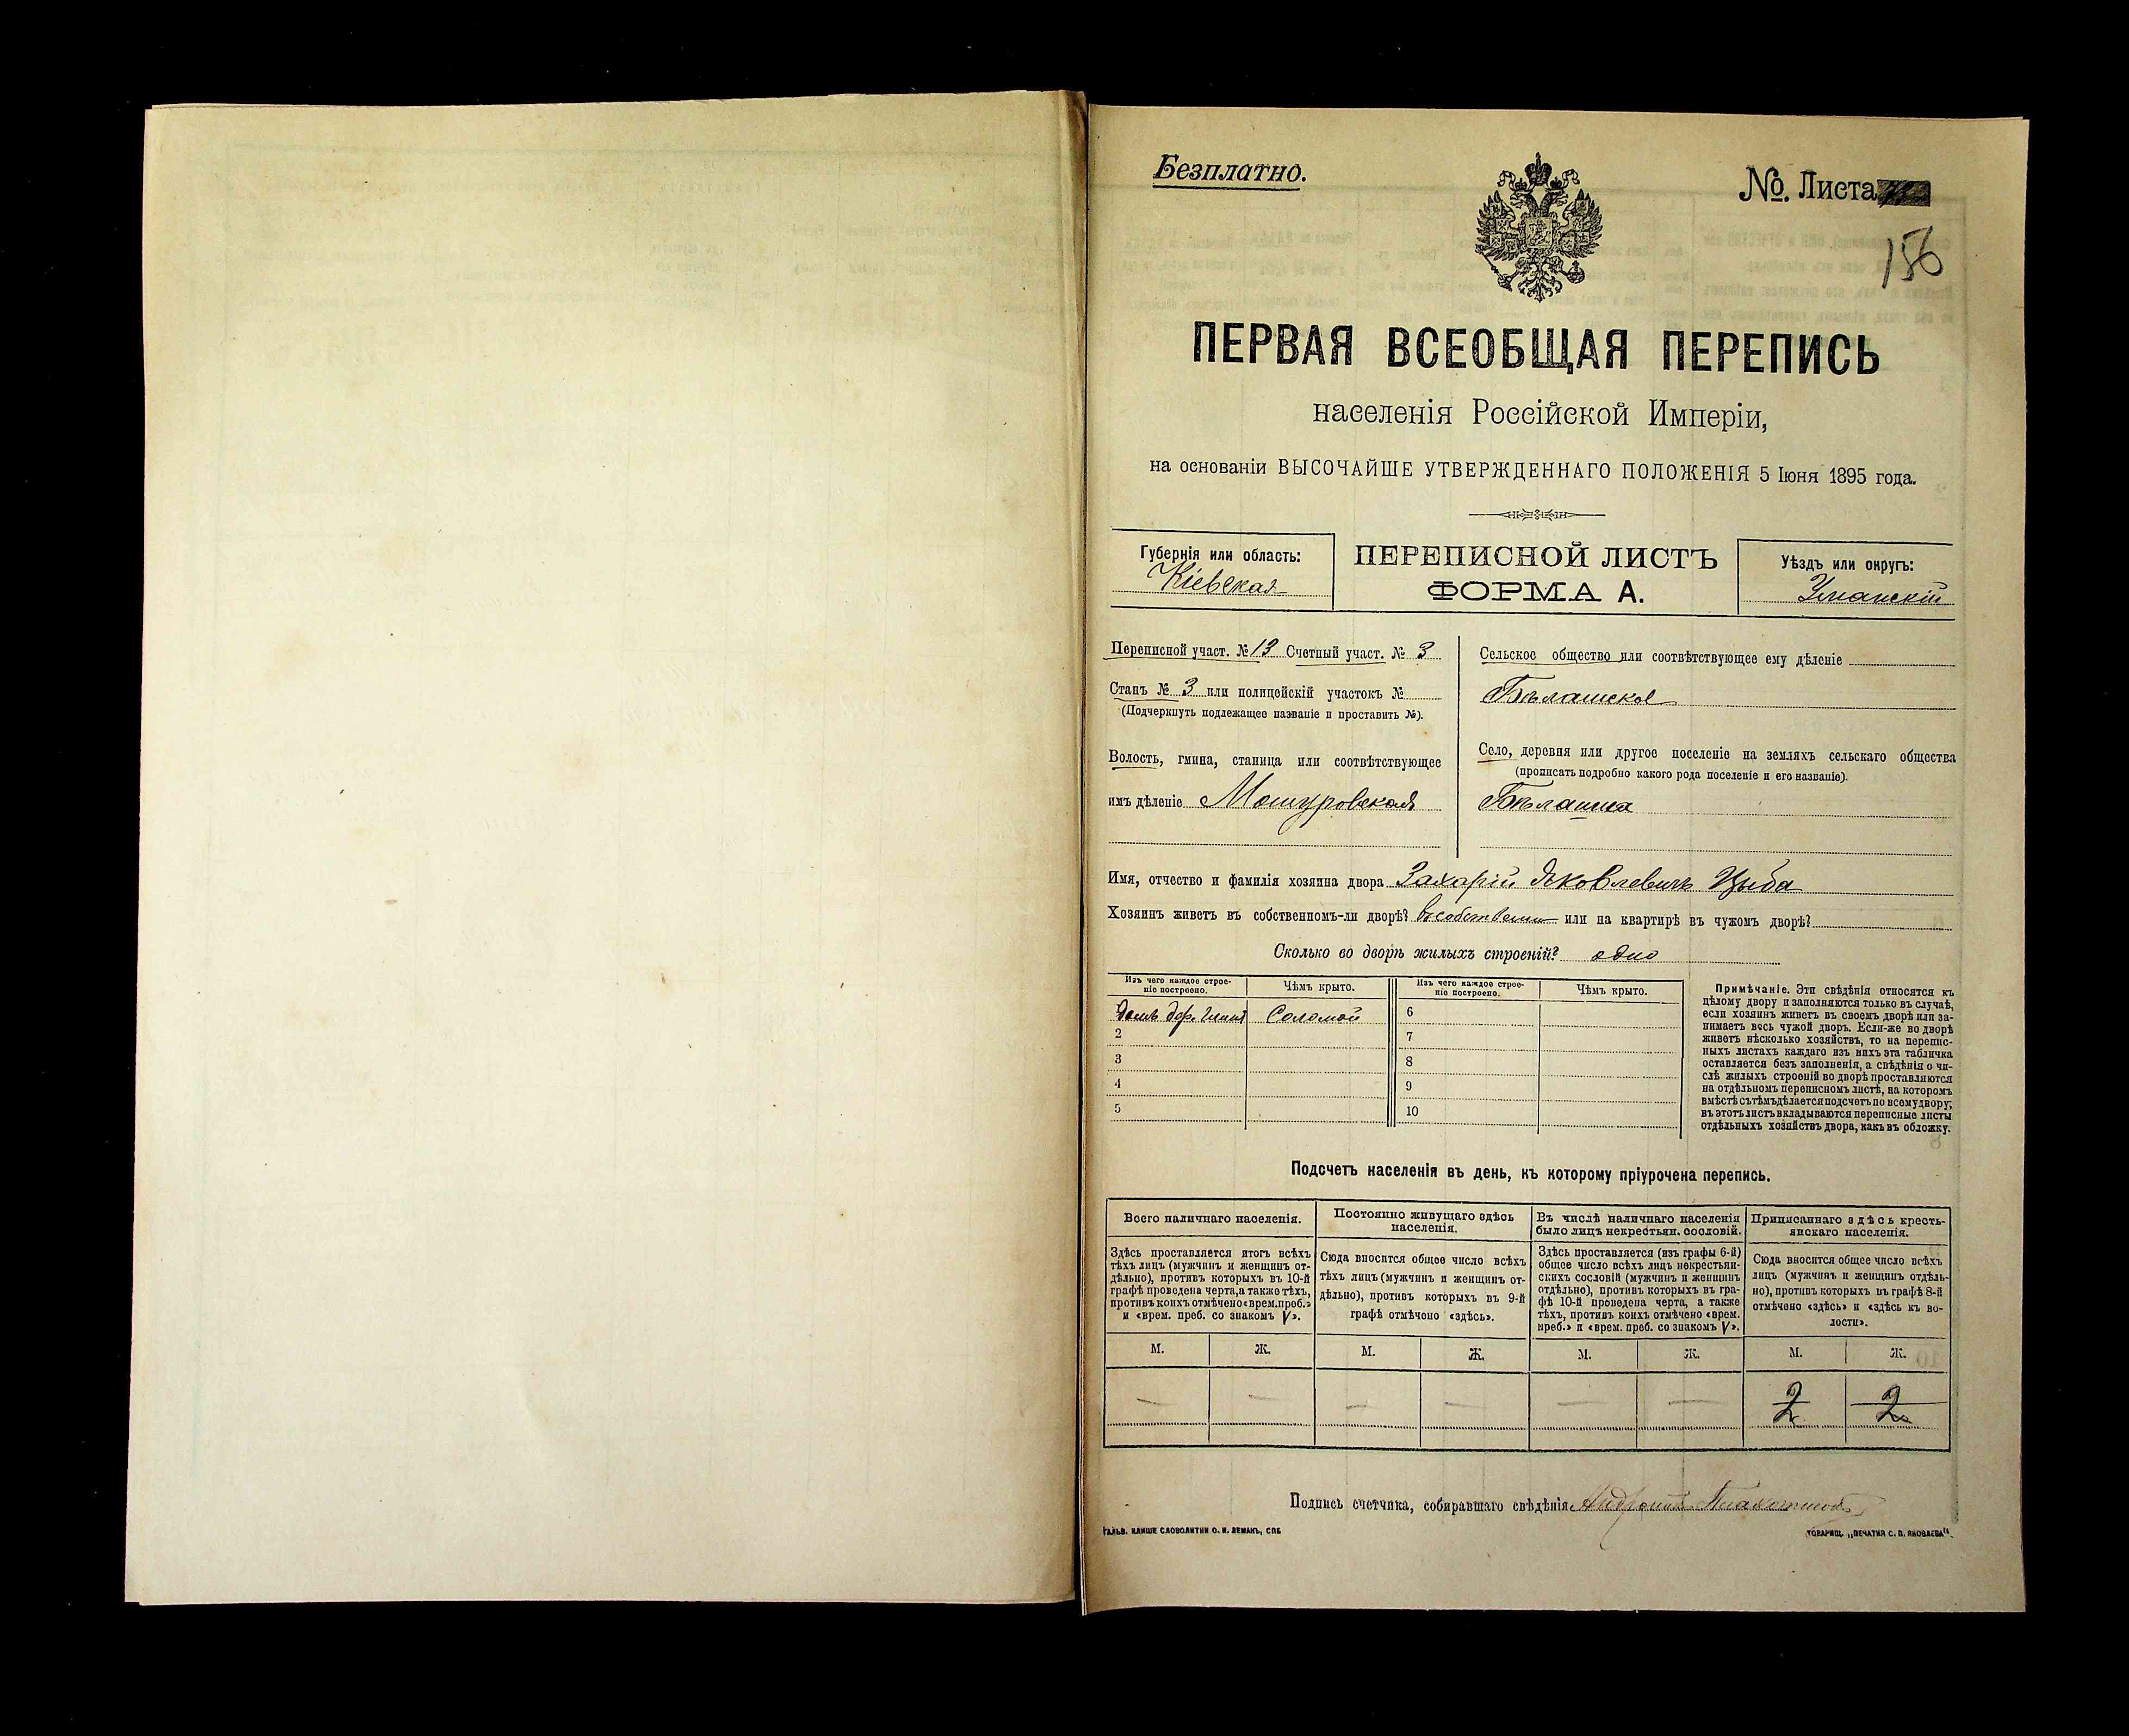 Безплатно.
№. Листа
156
ПЕРВАЯ ВСЕОБЩАЯ ПЕРЕПИСЬ
населенія Россійской Имперіи,
на основаніи ВЫСОЧАЙШЕ УТВЕРЖДЕННАГО ПОЛОЖЕНІЯ 5 Іюня 1895 года.
Губернія или область:
Кіевская
ПЕРЕПИСНОЙ ЛИСТЪ
ФОРМА А.
Уѣздъ или округъ:
Уманскій
Переписной участ. № 13 Счетный участ. № 3
Станъ № 3 или полицейскій участокъ №
(Подчеркнуть подлежащее названіе и проставить №).
Волость, гмина, станица или соотвѣтствующее
имъ дѣленіе Машуровская
Сельское общество или соотвѣтствующее ему дѣленіе
Бѣлашское
Село, деревня или другое поселеніе на земляхъ сельскаго общества
(прописать подробно какого рода поселеніе и его названіе).
Бѣлашка
Имя, отчество и фамилія хозяина двора Захарій Яковлевичъ Цыба
Хозяинъ живетъ въ собственномъ-ли дворѣ? въ собствен или на квартирѣ въ чужомъ дворѣ?
Сколько во дворѣ жилыхъ строеній? одно
Изъ чего каждое строе-
ніе построено.
Чѣмъ крыто.
Изъ чего каждое строе-
ніе построено.
Чѣмъ крыто.
Соломой
2
3
4
5
6
7
8
9
10
Примѣчаніе. Эти свѣдѣнія относятся къ
цѣлому двору и заполняются только въ случаѣ,
если хозяинъ живетъ въ своемъ дворѣ или за-
нимаетъ весь чужой дворъ. Если-же во дворѣ
живетъ нѣсколько хозяйствъ, то на перепис-
ныхъ листахъ каждаго изъ нихъ эта табличка
оставляется безъ заполненія, а свѣдѣнія о чи-
слѣ жилыхъ строеній во дворѣ проставляются
на отдѣльномъ переписномъ листѣ, на которомъ
вмѣстѣ съ тѣмъ дѣлается подсчетъ по всему двору;
въ этотъ листъ вкладываются переписные листы
отдѣльныхъ хозяйствъ двора, какъ въ обложку.
Подсчетъ населенія въ день, къ которому пріурочена перепись.
Всего наличнаго населенія.
Здѣсь проставляется итогъ всѣхъ
тѣхъ лицъ (мужчинъ и женщинъ от-
дѣльно), противъ которыхъ въ 10-й
графѣ проведена черта, а также тѣхъ,
противъ коихъ отмѣчено «врем. преб.»
и «врем. преб. со знакомъ V».
Постоянно живущаго здѣсь
населенія.
Сюда вносится общее число всѣхъ
тѣхъ лицъ (мужчинъ и женщинъ от-
дѣльно), противъ которыхъ въ 9-й
графѣ отмѣчено «здѣсь».
Въ числѣ наличнаго населенія
было лицъ некрестьян. сословій.
Здѣсь проставляется (изъ графы 6-й)
общее число всѣхъ лицъ некрестьян-
скихъ сословій (мужчинъ и женщинъ
отдѣльно), противъ которыхъ въ гра-
фѣ 10-й проведена черта, а также
тѣхъ, противъ коихъ отмѣчено «врем.
преб.» и «врем. преб. со знакомъ V».
Приписаннаго здѣсь кресть-
янскаго населенія.
Сюда вносится общее число всѣхъ
лицъ (мужчинъ и женщинъ отдѣль-
но), противъ которыхъ въ графѣ 8-й
отмѣчено «здѣсь» и «здѣсь къ во-
лости».
М. Ж. М. Ж. М. Ж. М. Ж.
— — — — — — 2 2
Подпись счетчика, собиравшаго свѣдѣнія
ГАЛЬВ. КЛИШЕ СЛОВОЛИТНИ О. И. ЛЕМАНЪ, СПБ
ТОВАРИЩ. „ПЕЧАТНЯ С. П. ЯКОВЛЕВА“.